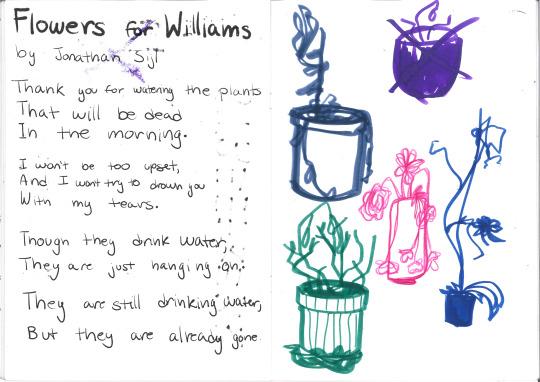 Flowers for Williams
by Jonathan Sijl
Thank you for watering the plants
That will be dead
In the morning.
I won't be too upset,
And I won't try to drown you
With my tears.
Though they drink water,
They are just hanging on.
They are still drinking water,
But they are already gone